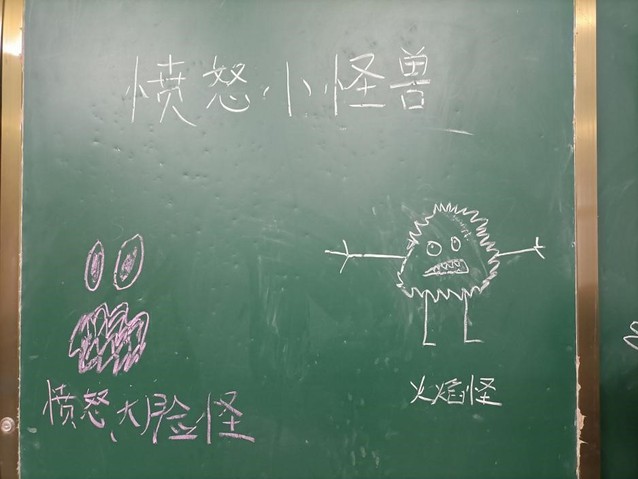 愤怒小怪兽
愤怒大脸怪
火焰怪